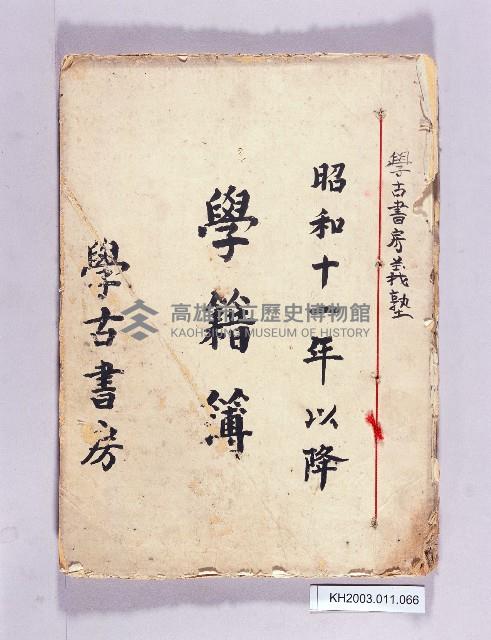 學古書房義塾
昭和十一年以降
學籍簿
學古書房
高雄市立歷史博物館
KAOHSIUNG MUSEUM OF HISTORY
KH2003.011.066